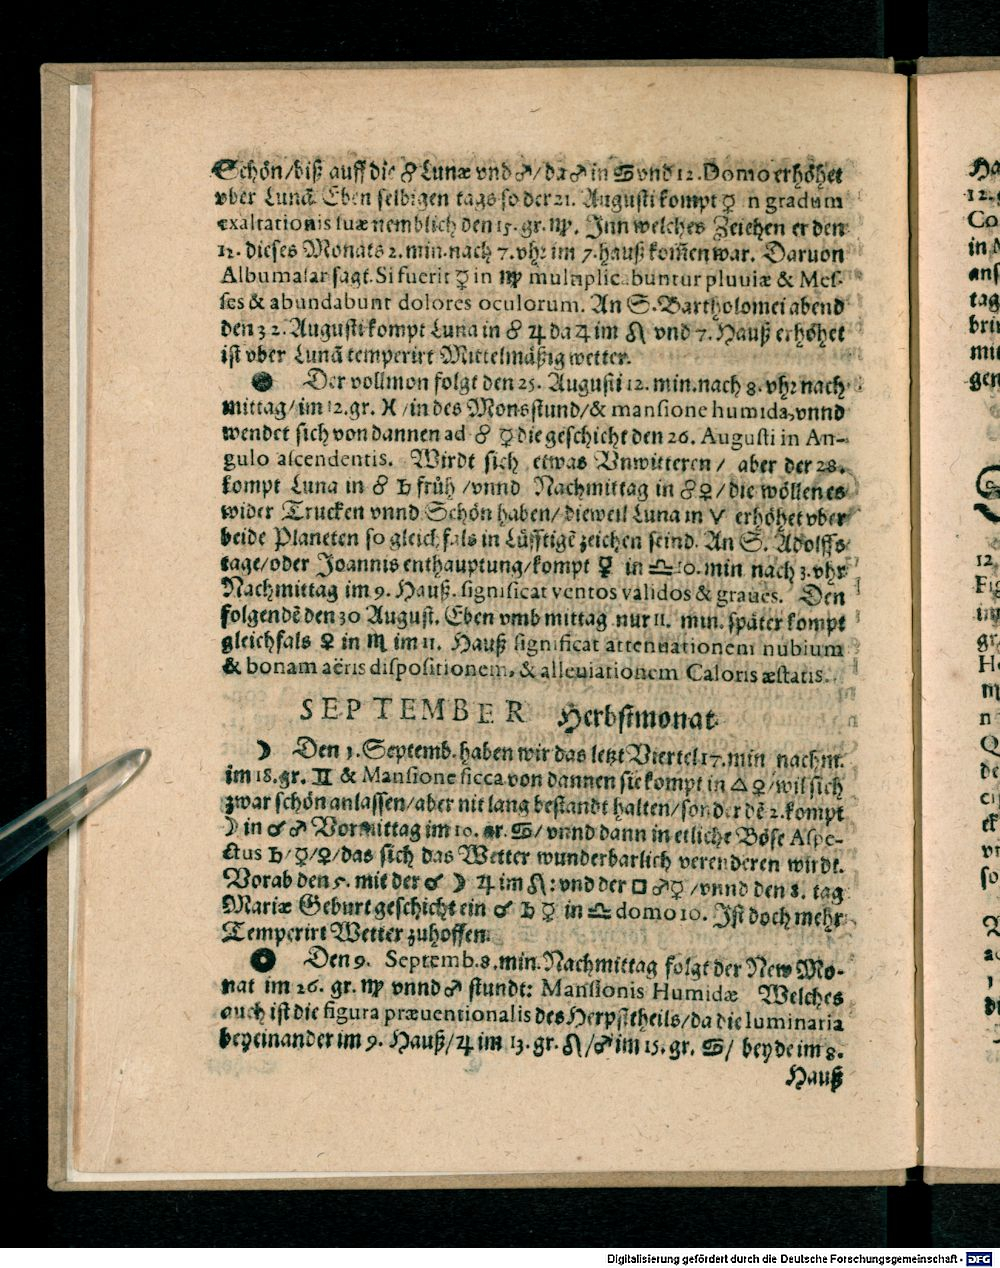 Schön/biß auff die ☍ Lunæ vnd ♂/da ♂ in ♋ vnd 12. Domo erhöhet
vber Lunã. Eben selbigen tags so der 21. Augusti kompt ☿ in gradum
exaltationis suæ nemblich den 15. gr. ♍. Jnn welches Zeichen er den
12. dieses Monats 2. min. nach 7. vhr im 7. hauß kom̃en war. Daruon
Albumasar sagt. Si fuerit ☿ in ♍ multiplicabuntur pluuiæ & Mes-
ses & abundabunt dolores oculorum. An S. Bartholomei abend
den 32. Augusti kompt Luna in ☍ ♃ da ♃ im ♌ vnd 7. Hauß erhöhet
ist vber Lunã temperirt Mittelmäßig wetter.
Der vollmon folgt den 25. Augusti 12. min. nach 8. vhr nach
mittag/im 12. gr. ♓/in des Mons stund/& mansione humida, vnnd
wendet sich von dannen ad ☍ ☿ die geschicht den 26. Augusti in An-
gulo ascendentis. Wirdt sich etwas Vnwitteren/ aber der 28.
kompt Luna in ☍ ♄ früh/vnnd Nachmittag in ☍ ♀/die wöllen es
wider Trucken vnnd Schön haben/dieweil Luna in ♈ erhöhet vber
beide Planeten so gleichfals in Lüfftigẽ zeichen seind. An S. Adolffs
tage/oder Joannis enthauptung/kompt ☿ in ♎ 10. min nach 3. vhr
Nachmittag im 9. Hauß. significat ventos validos & graues. Den
folgendẽ den 30 August. Eben vmb mittag nur 11. min. später kompt
gleichfals ♀ in ♏ im 11. Hauß significat attenuationem nubium
& bonam aëris dispositionem, & alleuiationem Caloris æstatis.
SEPTEMBER Herbstmonat
☽ Den 1. Septemb. haben wir das letzt Viertel 17. min nach mt.
im 18. gr. ♊ & Mansione sicca von dannen sie kompt in △ ♀/wil sich
zwar schön anlassen/aber nit lang bestandt halten/sonder dẽ 2. kompt
☽ in ☌ ♂ Vormittag im 10. gr. ♋/ vnnd dann in etliche Böse Aspe-
ctus ♄/☿/♀/das sich das Wetter wunderbarlich verenderen wirdt.
Vorab den 5. mit der ☌ ☽ ♃ im ♌: vnd der □ ♂ ☿/vnnd den 8. tag
Mariæ Geburt geschicht ein ☌ ♄ ☿ in ♎ domo 10. Jst doch mehr
Temperirt Wetter zuhoffen.
Den 9. Septemb. 8. min. Nachmittag folgt der New Mo-
nat im 26. gr. ♍ vnnd ♂ stundt: Mansionis Humidæ Welches
auch ist die figura præuentionalis des Herpstheils/da die luminaria
beyeinander im 9. Hauß/♃ im 13. gr. ♌/♂ im 15. gr. ♋/ beyde im 8.
Hauß
Digitalisierung gefördert durch die Deutsche Forschungsgemeinschaft - DFG